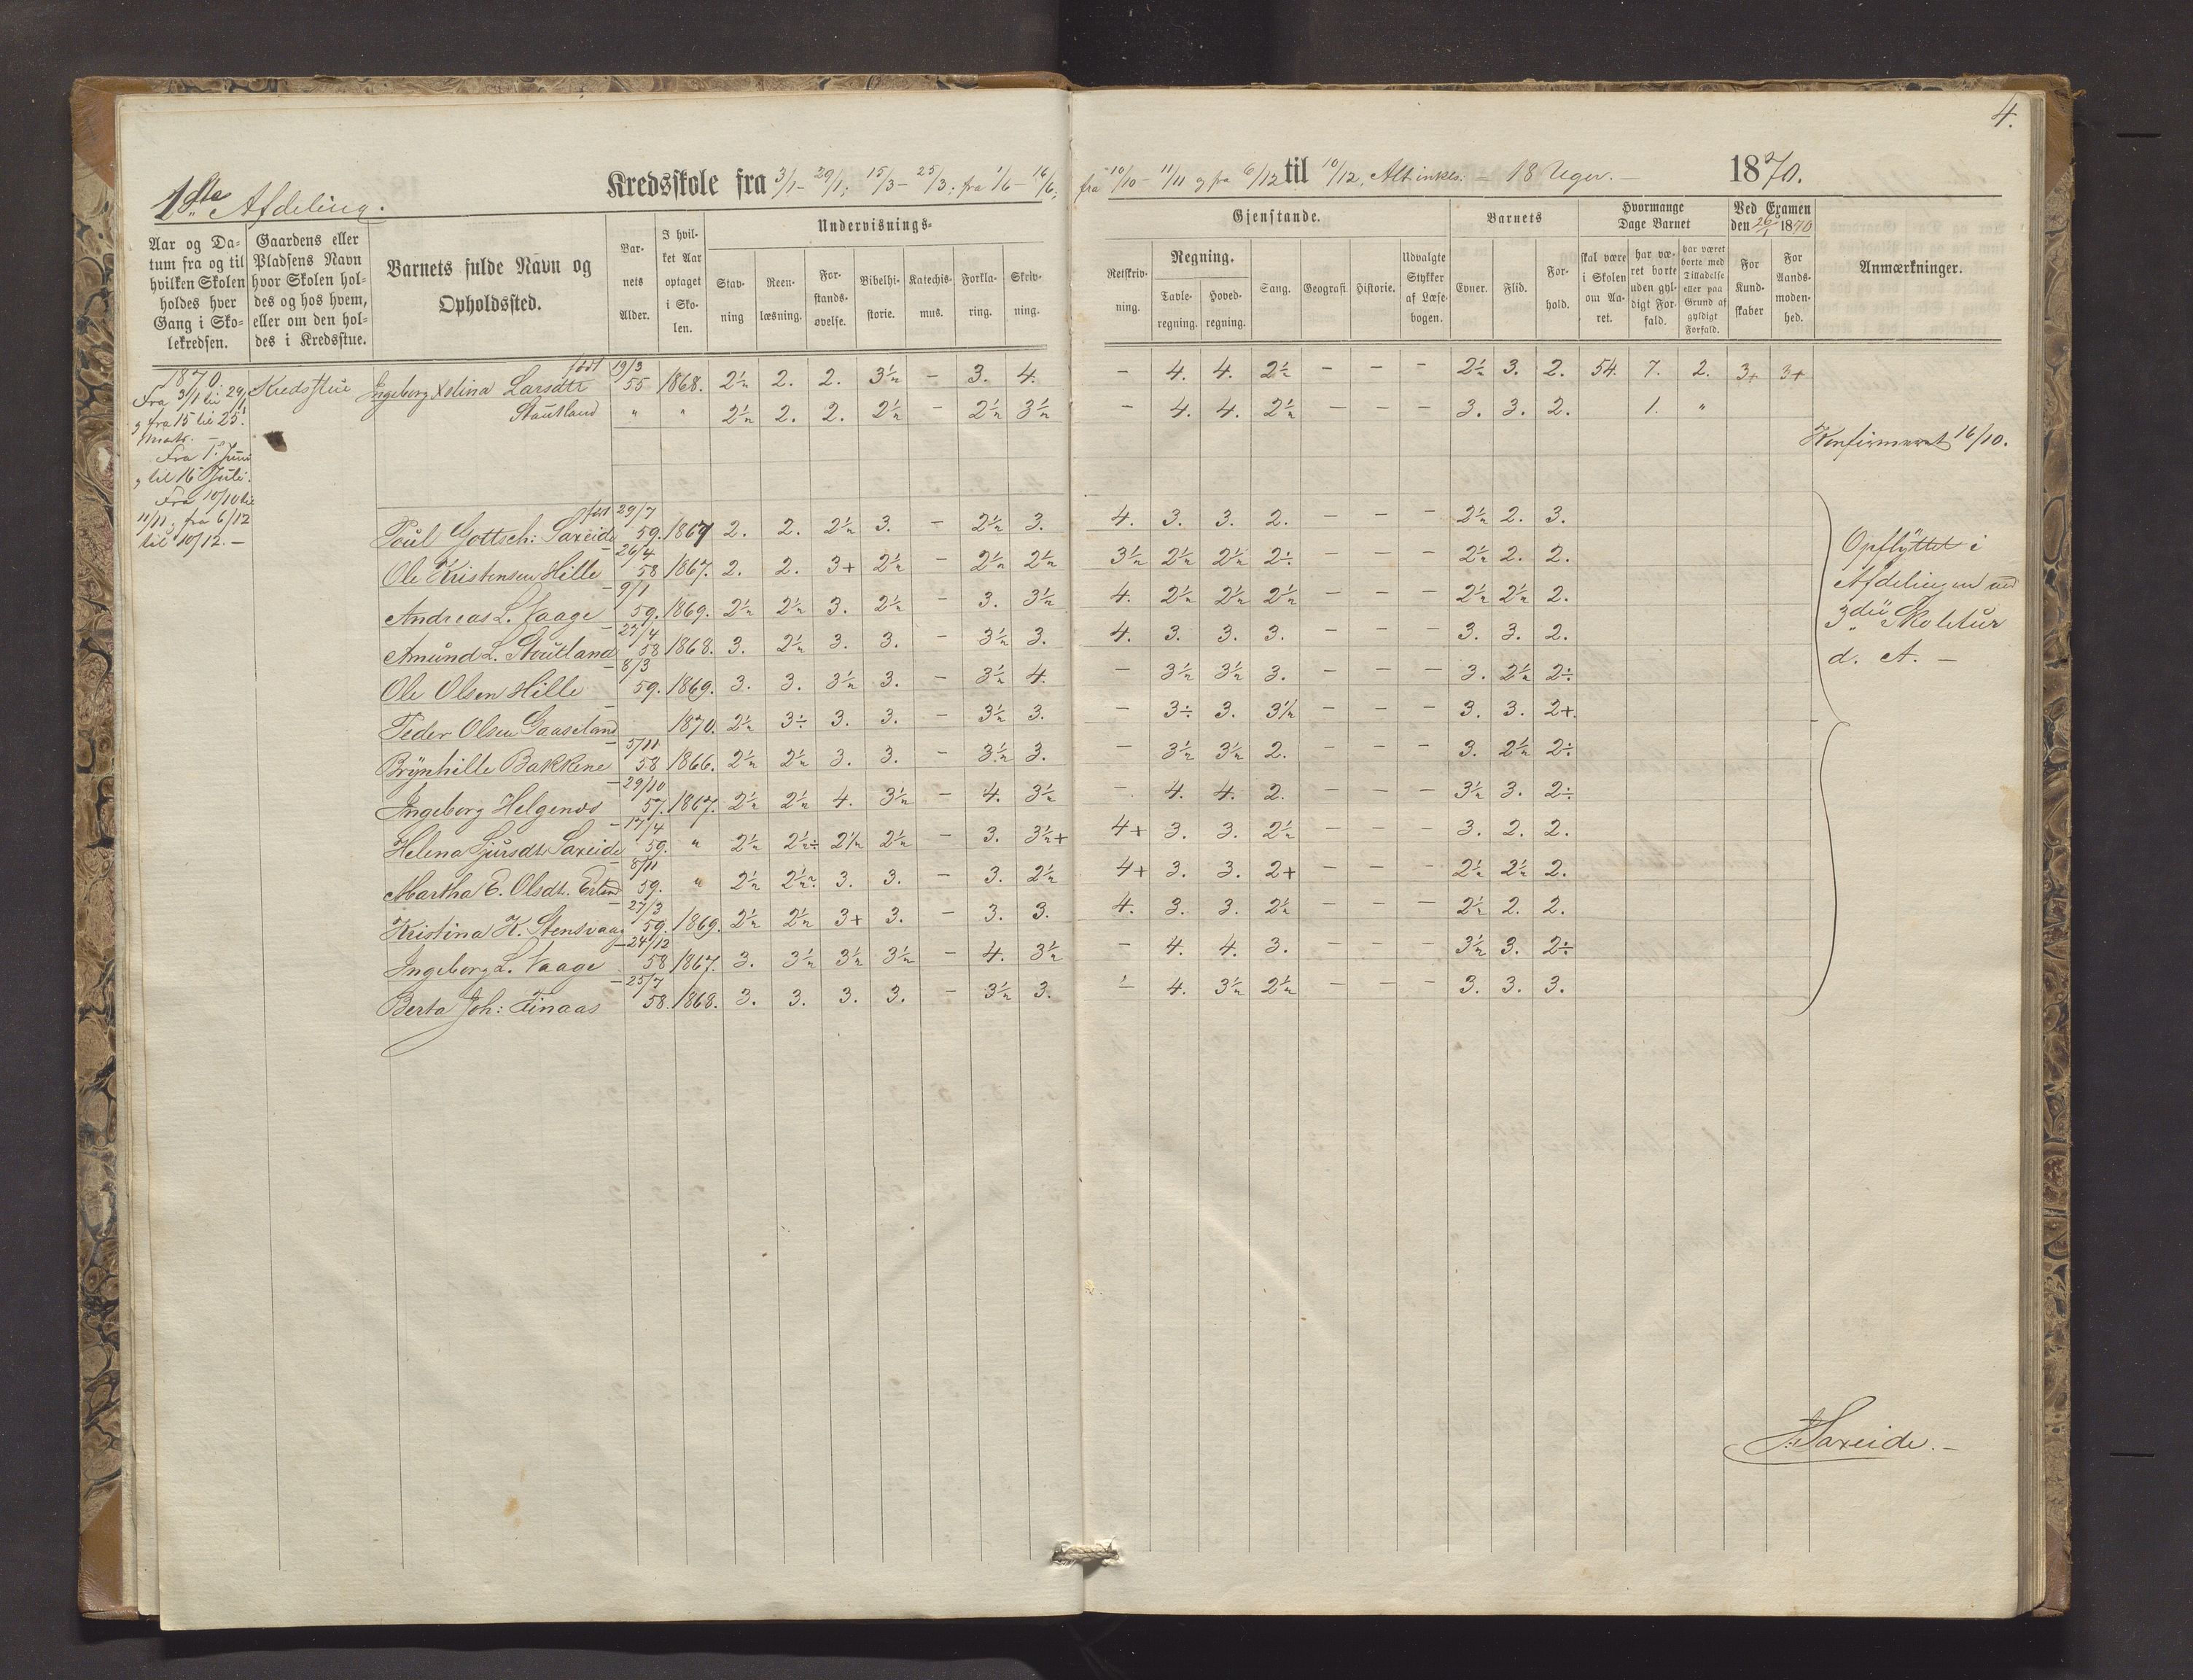 4.
1ste Afdeling.
Kredsskole fra 3/1 - 29/1; 15/3 - 25/3; fra 1/6 - 16/6; fra 10/10 - 11/11 og fra 6/12 til 10/12. Alt inkls: - 18 Uger. - 1870.
Aar og Da-
tum fra og til
hvilken Skolen
holdes hver
Gang i Sko-
lekredsen.
Gaardens eller
Pladsens Navn
hvor Skolen hol-
des og hos hvem,
eller om den hol-
des i Kredsstue.
Barnets fulde Navn og
Opholdssted.
Bar-
nets
Alder.
I hvil-
ket Aar
optaget
i Sko-
len.
Undervisnings-
Stav-
ning
Reen-
læsning.
For-
stands-
øvelse.
Bibelhi-
storie.
Katechis-
mus.
Forkla-
ring.
Skriv-
ning.
Gjenstande.
Retskriv-
ning.
Regning.
Tavle-
regning.
Hoved-
regning.
Sang.
Geografi.
Historie.
Udvalgte
Stykker
af Læse-
bogen.
Barnets
Evner.
Flid.
For-
hold.
Hvormange
Dage Barnet
skal være
i Skolen
om Aa-
ret.
har væ-
ret borte
uden gyl-
digt For-
fald.
har været
borte med
Tilladelse
eller paa
Grund af
gyldigt
Forfald.
Ved Examen
den 26/1 1870
For
Kund-
skaber
For
Aands-
moden-
hed.
Anmærkninger.
1870.
Fra 3/1 til 29/1
og fra 15 til 25.
Marts. -
Fra 1. Juni
og til 16 Juli.
Fra 10/10 til
11/11, fra 6/12
til 10/12. -
Kredsstue
Ingeborg Larsdtr født 19/3 55 1868. 2½ 2. 2. 3½ - 3. 4. - 4. 4. 2½ - - - 2½ 3. 2. 54. 7. 2. 3+ 3+
Stautland " " 2½ 2. 2. 2½ - 2½ 3½ - 4. 4. 2½ - - - 3. 3. 2. 1. "
Konfirmeret 16/10.
Poul Gottsch: Saxeide født 29/7 59. 1867 2. 2. 2½ 3. - 2½ 3. 4. 3. 3. 2. - - - 2½ 2. 3.
Ole Kristensen Hille 26/4 58 1867. 2. 2. 3+ 2½ - 2½ 2½ 3½ 2½ 2½ 2÷ - - - 2½ 2. 2.
Andreas L. Vaage 9/1 59. 1869. 2½ 2½ 3. 2½ - 3. 3½ 4. 2½ 2½ 2½ - - - 2½ 2½ 2.
Amund L. Stoutland 27/4 58 1868. 3. 2½ 3. 3. - 3½ 3. 4. 3. 3. 3. - - - 3. 3. 2.
Ole Olsen Hille 8/3 59. 1869. 3. 3. 3½ 3. - 3½ 4. - 3½ 3½ 3. - - - 3. 2½ 2÷
Peder Olsen Gaaseland 1870. 2½ 3÷ 3. 3. - 3½ 3. - 3÷ 3. 3½ - - - 3. 3. 2+.
Brynhille Bakkene 5/11 58 1866. 2½ 2½ 3. 3. - 3½ 3. - 3½ 3½ 2. - - - 3. 2½ 2÷
Ingeborg Helgenæs 29/10 57. 1867. 2½ 2½ 4. 3½ - 4. 3½ - 4. 4. 2. - - - 3½ 3. 2÷
Helena Sjursdtr Saxeide 17/4 59. " 2½ 2½÷ 2½ 2½ - 3. 3½+ 4+ 3. 3. 2½ - - - 3. 2. 2.
Martha E. Olsdt. 8/11 59. " 2½ 2½ 3. 3. - 3. 2½ 4+ 3. 3. 2+ - - - 2½ 2½ 2.
Kristina K. Stensvaag 27/3 59. 1869. 2½ 2½ 3+ 3. - 3. 3. 4. 3. 3. 2½ - - - 2½ 2. 2.
Ingeborg L. Vaage 24/12 58 1867. 3. 3½ 3½ 3½ - 4. 3½ - 4. 4. 3. - - - 3½ 3. 2÷
Berta Joh: Finaas 25/7 58. 1868. 3. 3. 3. 3. - 3½ 3. - 4. 3½ 2½ - - - 3. 3. 3.
Opflyttet i
Afdelingen ved
3die Skoletur
d. A. -
Saxeide. -